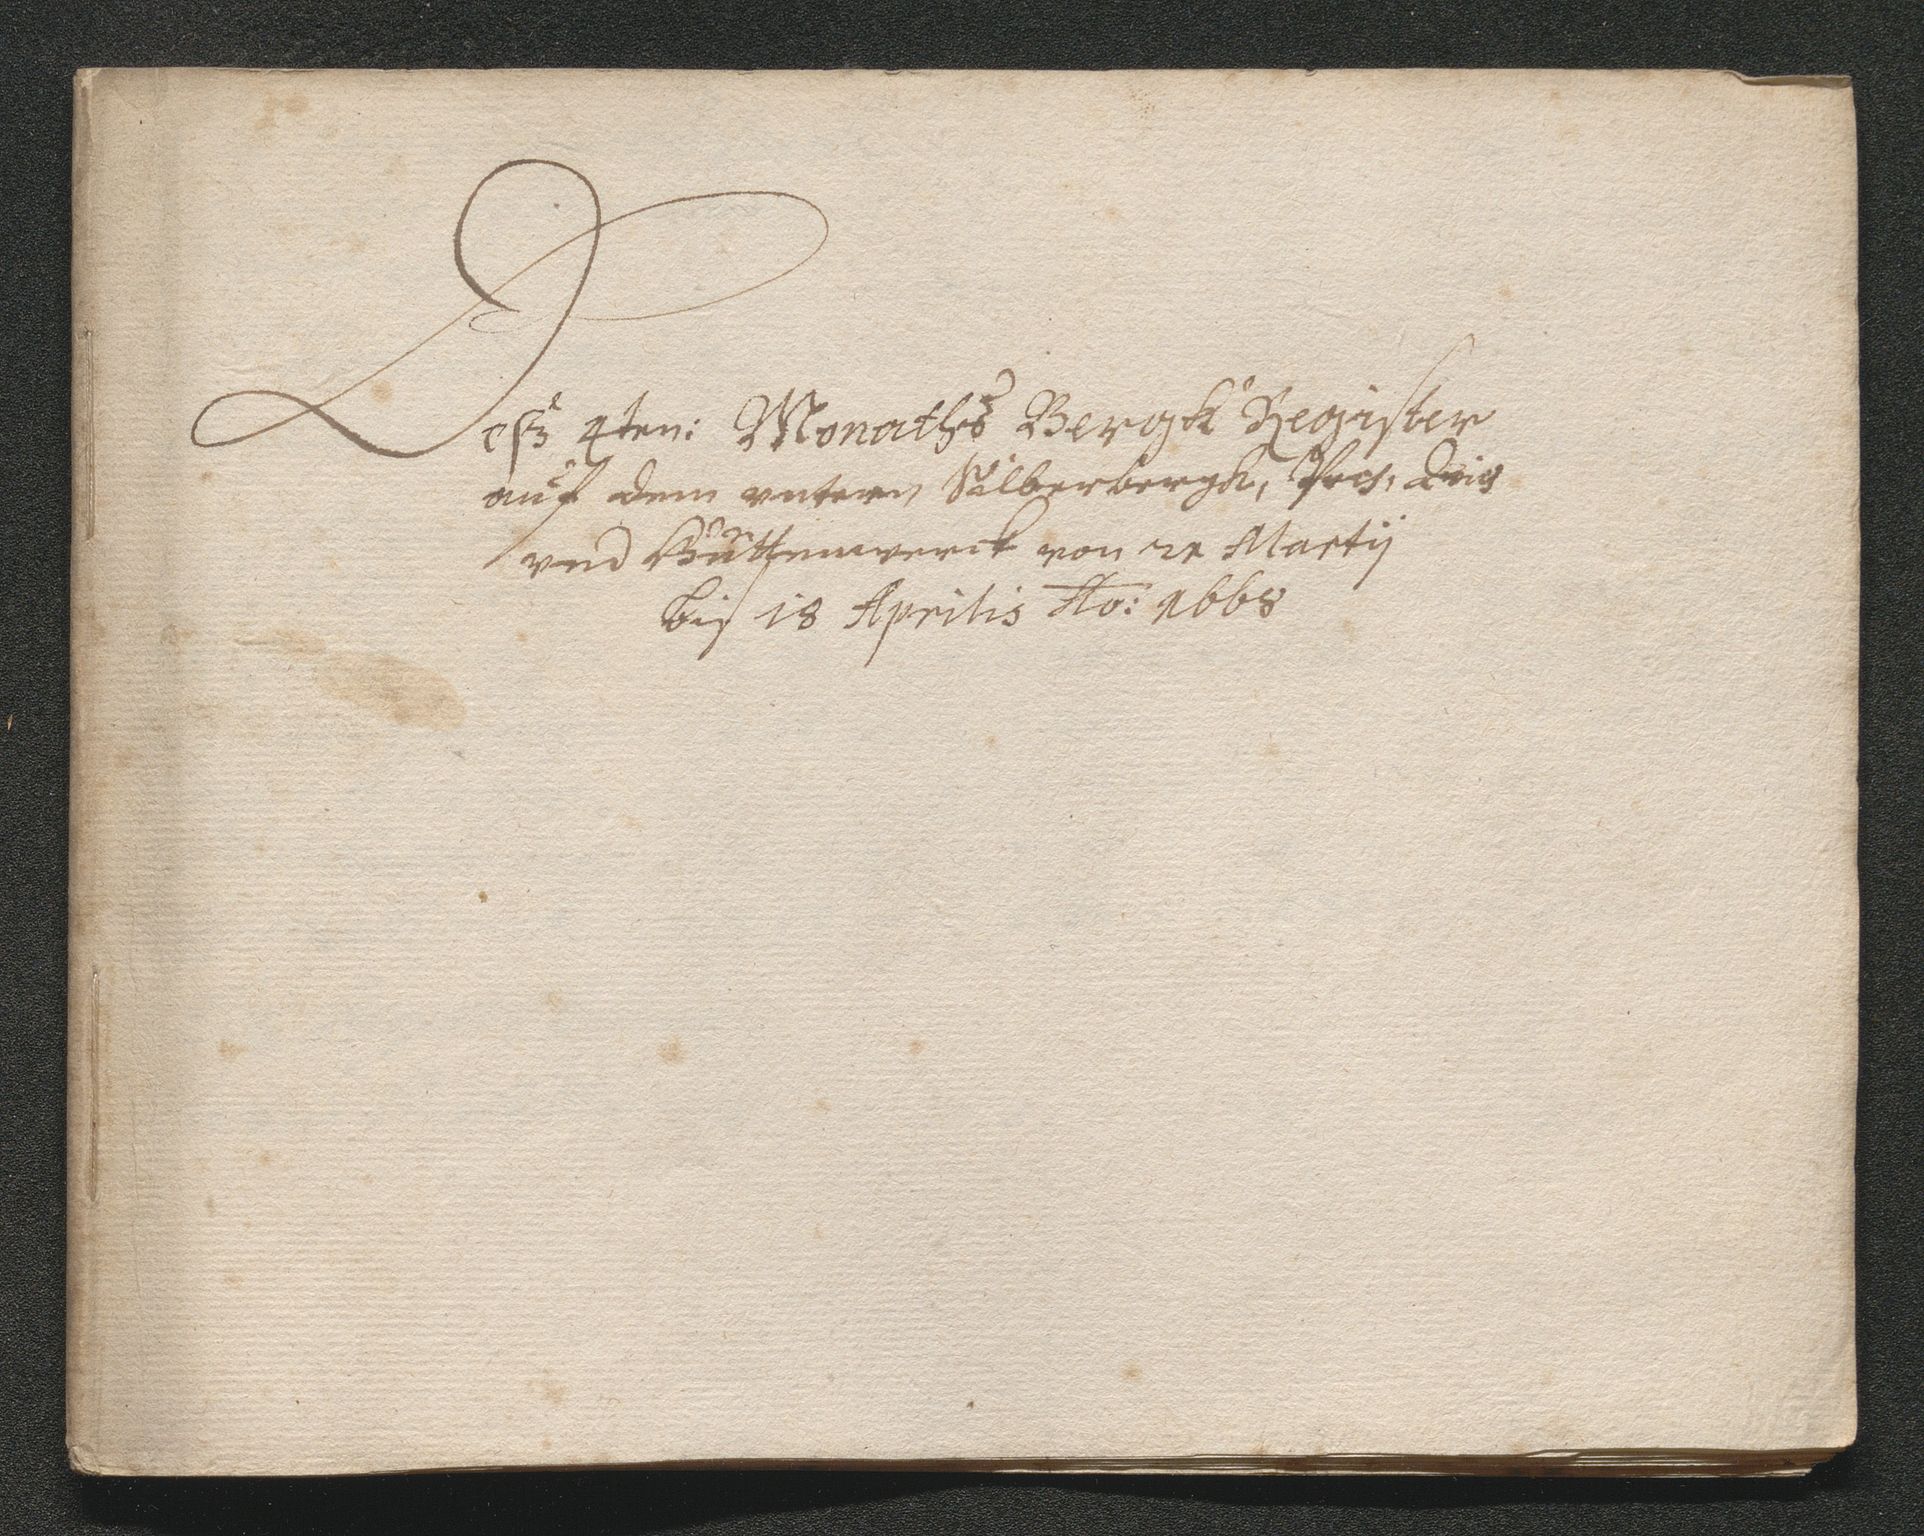 Deß 4ten: Monaths Bergk Register
auf dem untern Silberbergk, Poch,
und Hüttenwerck von 21 Martij
biß 18 Aprilis Ao: 1668